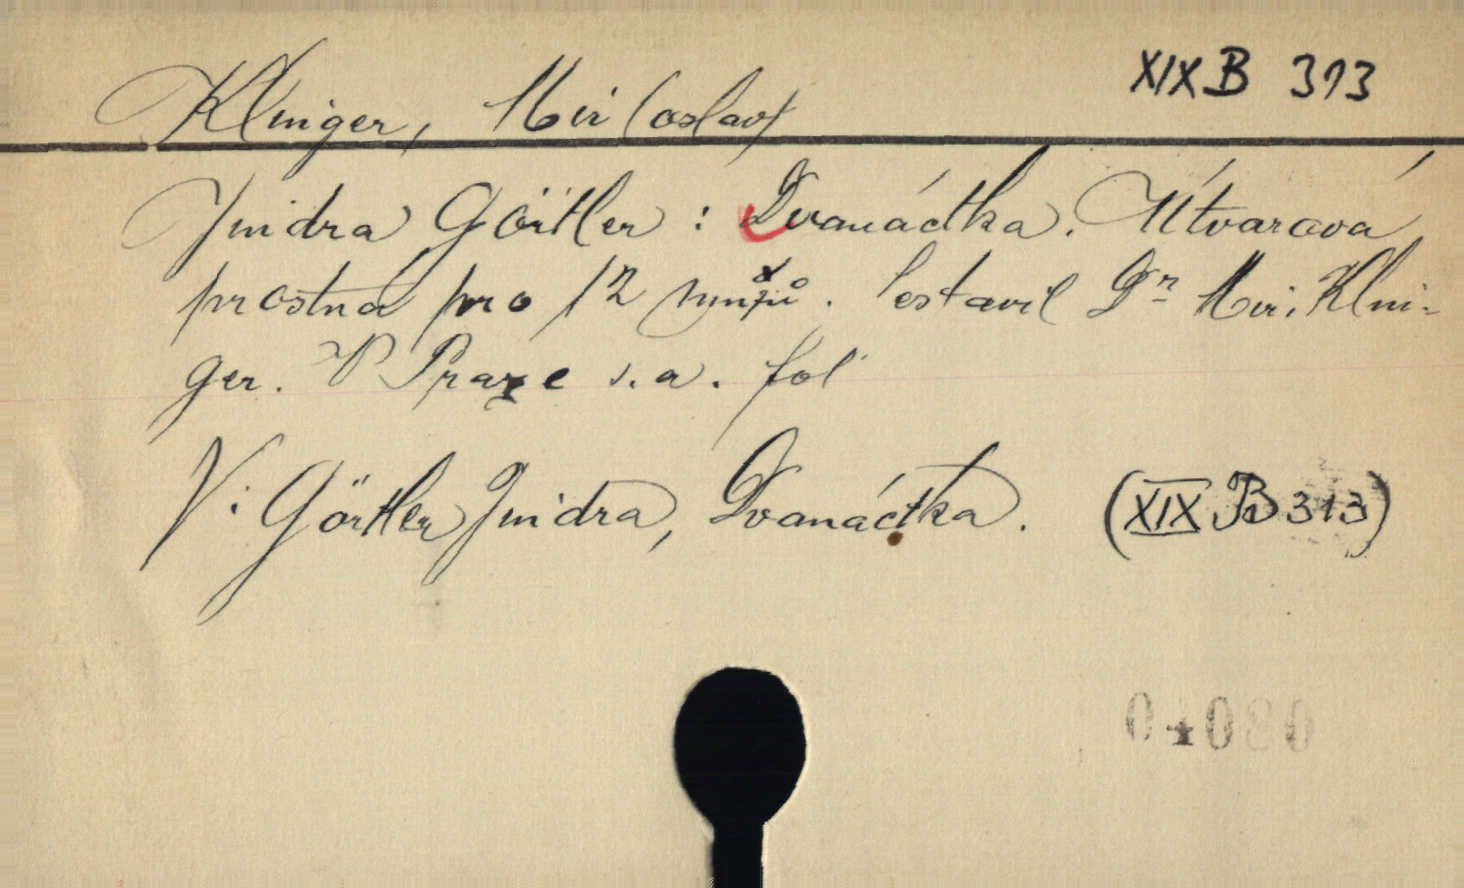 XIX B 313
Klinger, Mir(oslav)
Jindra Görtler: Dvanáctka. Útvarová
prostná pro 12 mužů. Sestavil Dr Mir. Klin-
ger. V Praze s.a. fol
V: Görtler Jindra, Dvanáctka. (XIX B 313)